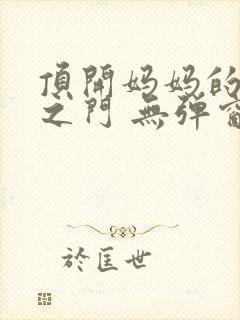 頂開妈妈的
之门 無弹窗
於匡世